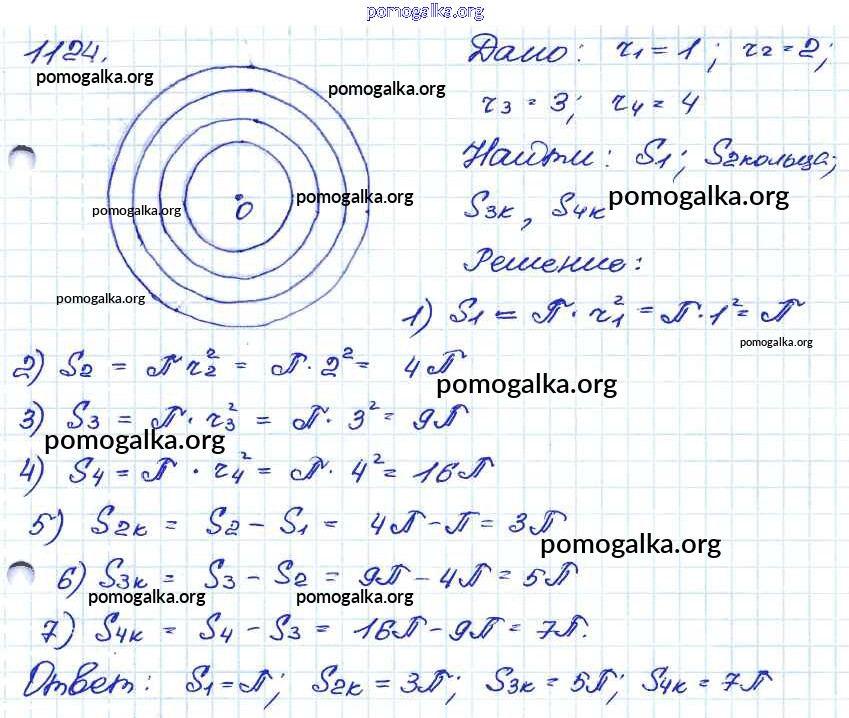 pomogalka.org
1124.
pomogalka.org
pomogalka.org
pomogalka.org
pomogalka.org
O
pomogalka.org
Дано: r₁ = 1; r₂ = 2;
r₃ = 3; r₄ = 4
Найти: S₁; S₂кольца;
S₃к, S₄к pomogalka.org
Решение:
1) S₁ = П · r₁² = П · 1² = П
pomogalka.org
2) S₂ = П r₂² = П · 2² = 4П
pomogalka.org
3) S₃ = П · r₃² = П · 3² = 9П
pomogalka.org
4) S₄ = П · r₄² = П · 4² = 16П
5) S₂к = S₂ – S₁ = 4П – П = 3П
pomogalka.org
6) S₃к = S₃ – S₂ = 9П – 4П = 5П
pomogalka.org pomogalka.org
7) S₄к = S₄ – S₃ = 16П – 9П = 7П.
Ответ: S₁ = П; S₂к = 3П; S₃к = 5П; S₄к = 7П